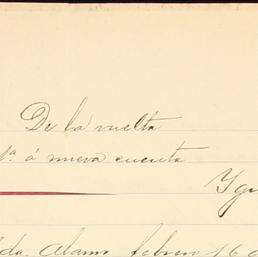 De la vuelta
á nueva cuenta
Álamo febrero 16